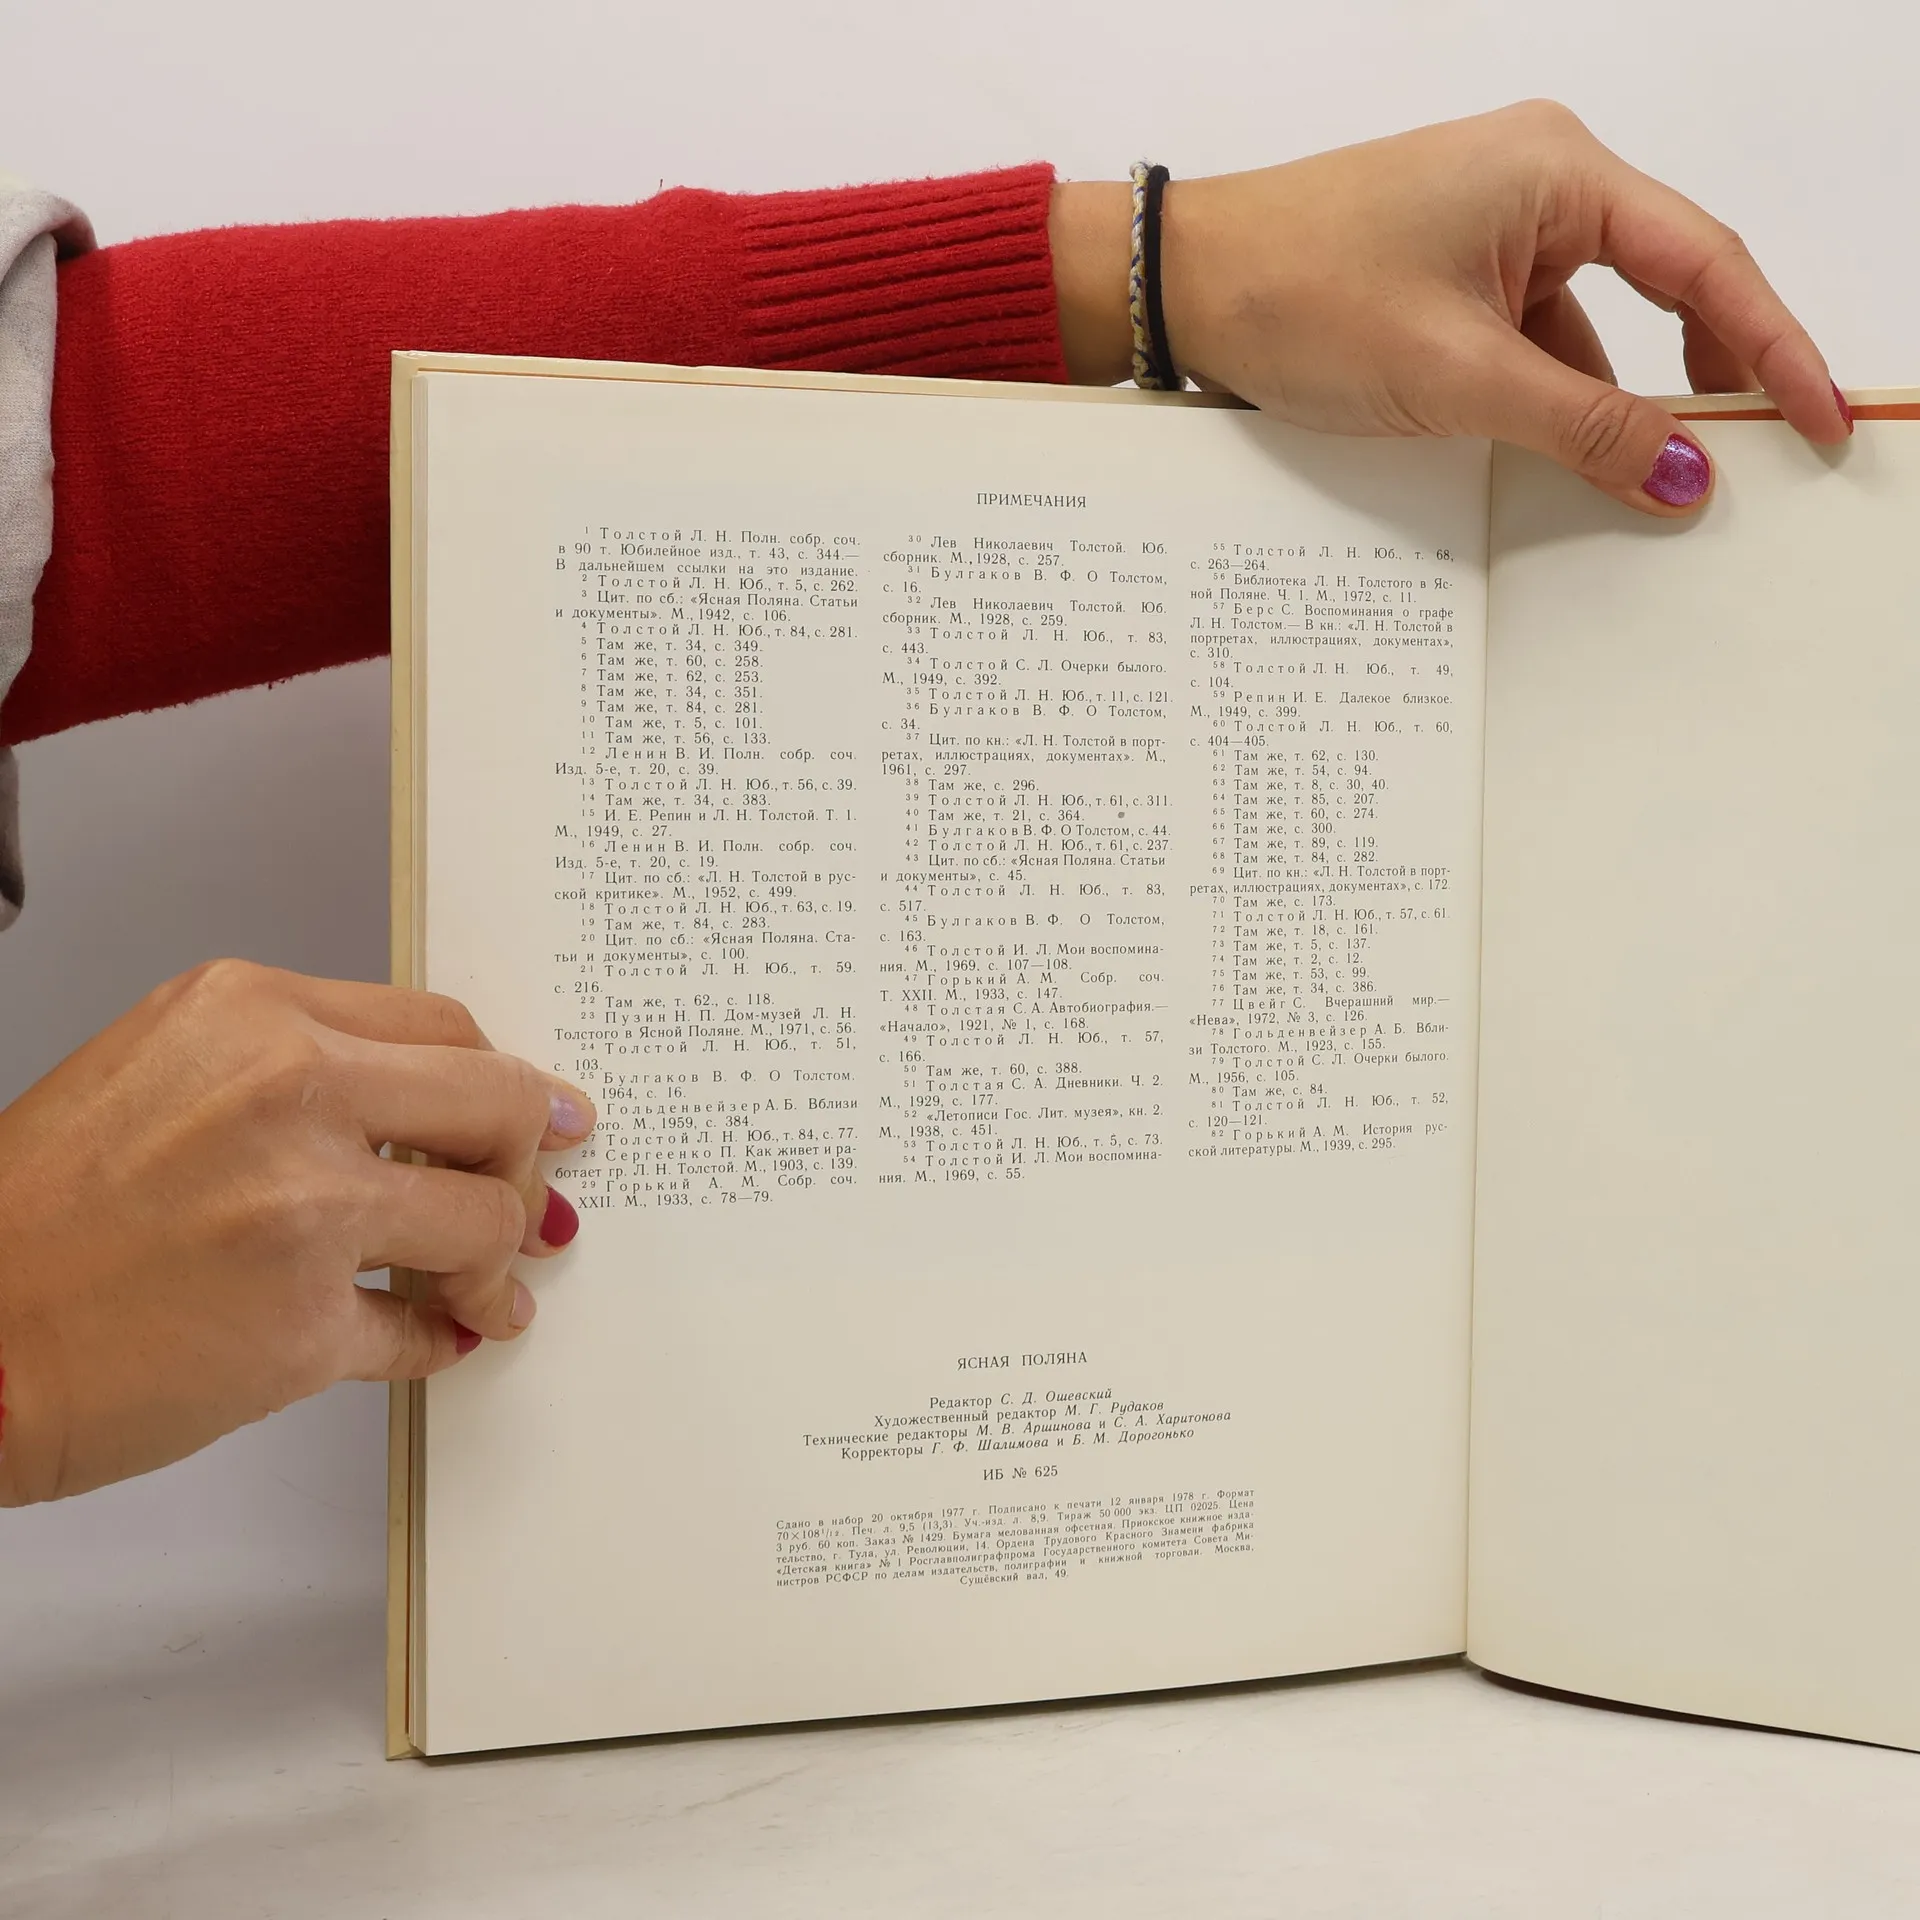 ПРИМЕЧАНИЯ
1 Толстой Л. Н. Полн. собр. соч.
в 90 т. Юбилейное изд., т. 43, с. 344.—
В дальнейшем ссылки на это издание.
2 Толстой Л. Н. Юб., т. 5, с. 262.
3 Цит. по сб.: «Ясная Поляна. Статьи
и документы». М., 1942, с. 106.
4 Толстой Л. Н. Юб., т. 84, с. 281.
5 Там же, т. 34, с. 349.
6 Там же, т. 60, с. 258.
7 Там же, т. 62, с. 253.
8 Там же, т. 34, с. 351.
9 Там же, т. 84, с. 281.
10 Там же, т. 5, с. 101.
11 Там же, т. 56, с. 133.
12 Ленин В. И. Полн. собр. соч.
Изд. 5-е, т. 20, с. 39.
13 Толстой Л. Н. Юб., т. 56, с. 39.
14 Там же, т. 34, с. 383.
15 И. Е. Репин и Л. Н. Толстой. Т. 1.
М., 1949, с. 27.
16 Ленин В. И. Полн. собр. соч.
Изд. 5-е, т. 20, с. 19.
17 Цит. по сб.: «Л. Н. Толстой в рус-
ской критике». М., 1952, с. 499.
18 Толстой Л. Н. Юб., т. 63, с. 19.
19 Там же, т. 84, с. 283.
20 Цит. по сб.: «Ясная Поляна. Ста-
тьи и документы», с. 100.
21 Толстой Л. Н. Юб., т. 59.
с. 216.
22 Там же, т. 62., с. 118.
23 Пузин Н. П. Дом-музей Л. Н.
Толстого в Ясной Поляне. М., 1971, с. 56.
24 Толстой Л. Н. Юб., т. 51,
с. 103.
25 Булгаков В. Ф. О Толстом.
1964, с. 16.
Гольденвейзер А. Б. Вблизи
ого. М., 1959, с. 384.
27 Толстой Л. Н. Юб., т. 84, с. 77.
28 Сергеенко П. Как живет и ра-
ботает гр. Л. Н. Толстой. М., 1903, с. 139.
29 Горький А. М. Собр. соч.
XXII. М., 1933, с. 78—79.
30 Лев Николаевич Толстой. Юб.
сборник. М., 1928, с. 257.
31 Булгаков В. Ф. О Толстом,
с. 16.
32 Лев Николаевич Толстой. Юб.
сборник. М., 1928, с. 259.
33 Толстой Л. Н. Юб., т. 83,
с. 443.
34 Толстой С. Л. Очерки былого.
М., 1949, с. 392.
35 Толстой Л. Н. Юб., т. 11, с. 121.
36 Булгаков В. Ф. О Толстом,
с. 34.
37 Цит. по кн.: «Л. Н. Толстой в порт-
ретах, иллюстрациях, документах». М.,
1961, с. 297.
38 Там же, с. 296.
39 Толстой Л. Н. Юб., т. 61, с. 311.
40 Там же, т. 21, с. 364.
41 Булгаков В. Ф. О Толстом, с. 44.
42 Толстой Л. Н. Юб., т. 61, с. 237.
43 Цит. по сб.: «Ясная Поляна. Статьи
и документы», с. 45.
44 Толстой Л. Н. Юб., т. 83,
с. 517.
45 Булгаков В. Ф. О Толстом,
с. 163.
46 Толстой И. Л. Мои воспомина-
ния. М., 1969, с. 107—108.
47 Горький А. М. Собр. соч.
Т. XXII. М., 1933, с. 147.
48 Толстая С. А. Автобиография.—
«Начало», 1921, № 1, с. 168.
49 Толстой Л. Н. Юб., т. 57,
с. 166.
50 Там же, т. 60, с. 388.
51 Толстая С. А. Дневники. Ч. 2.
М., 1929, с. 177.
52 «Летописи Гос. Лит. музея», кн. 2.
М., 1938, с. 451.
53 Толстой Л. Н. Юб., т. 5, с. 73.
54 Толстой И. Л. Мои воспомина-
ния. М., 1969, с. 55.
55 Толстой Л. Н. Юб., т. 68,
с. 263—264.
56 Библиотека Л. Н. Толстого в Яс-
ной Поляне. Ч. 1. М., 1972, с. 11.
57 Берс С. Воспоминания о графе
Л. Н. Толстом.— В кн.: «Л. Н. Толстой в
портретах, иллюстрациях, документах»,
с. 310.
58 Толстой Л. Н. Юб., т. 49,
с. 104.
59 Репин И. Е. Далекое близкое.
М., 1949, с. 399.
60 Толстой Л. Н. Юб., т. 60,
с. 404—405.
61 Там же, т. 62, с. 130.
62 Там же, т. 54, с. 94.
63 Там же, т. 8, с. 30, 40.
64 Там же, т. 85, с. 207.
65 Там же, т. 60, с. 274.
66 Там же, с. 300.
67 Там же, т. 89, с. 119.
68 Там же, т. 84, с. 282.
69 Цит. по кн.: «Л. Н. Толстой в порт-
ретах, иллюстрациях, документах», с. 172
70 Там же, с. 173.
71 Толстой Л. Н. Юб., т. 57, с. 61.
72 Там же, т. 18, с. 161.
73 Там же, т. 5, с. 137.
74 Там же, т. 2, с. 12.
75 Там же, т. 53, с. 99.
76 Там же, т. 34, с. 386.
77 Цвейг С. Вчерашний мир.—
«Нева», 1972, № 3, с. 126.
78 Гольденвейзер А. Б. Вбли-
зи Толстого. М., 1923, с. 155.
79 Толстой С. Л. Очерки былого.
М., 1956, с. 105.
80 Там же, с. 84.
81 Толстой Л. Н. Юб., т. 52,
с. 120—121.
82 Горький А. М. История рус-
ской литературы. М., 1939, с. 295.
ЯСНАЯ ПОЛЯНА
Редактор С. Д. Ошевский
Художественный редактор М. Г. Рудаков
Технические редакторы М. В. Аршинова и С. А. Харитонова
Корректоры Г. Ф. Шалимова и Б. М. Дорогонько
ИБ № 625
Сдано в набор 20 октября 1977 г. Подписано к печати 12 января 1978 г. Формат
70×108 1/12. Печ. л. 9,5 (13,3). Уч.-изд. л. 8,9. Тираж 50 000 экз. ЦП 02025. Цена
3 руб. 60 коп. Заказ № 1429. Бумага мелованная офсетная. Приокское книжное изда-
тельство, г. Тула, ул. Революции, 14. Ордена Трудового Красного Знамени фабрика
«Детская книга» № 1 Росглавполиграфпрома Государственного комитета Совета Ми-
нистров РСФСР по делам издательств, полиграфии и книжной торговли. Москва,
Сущёвский вал, 49.